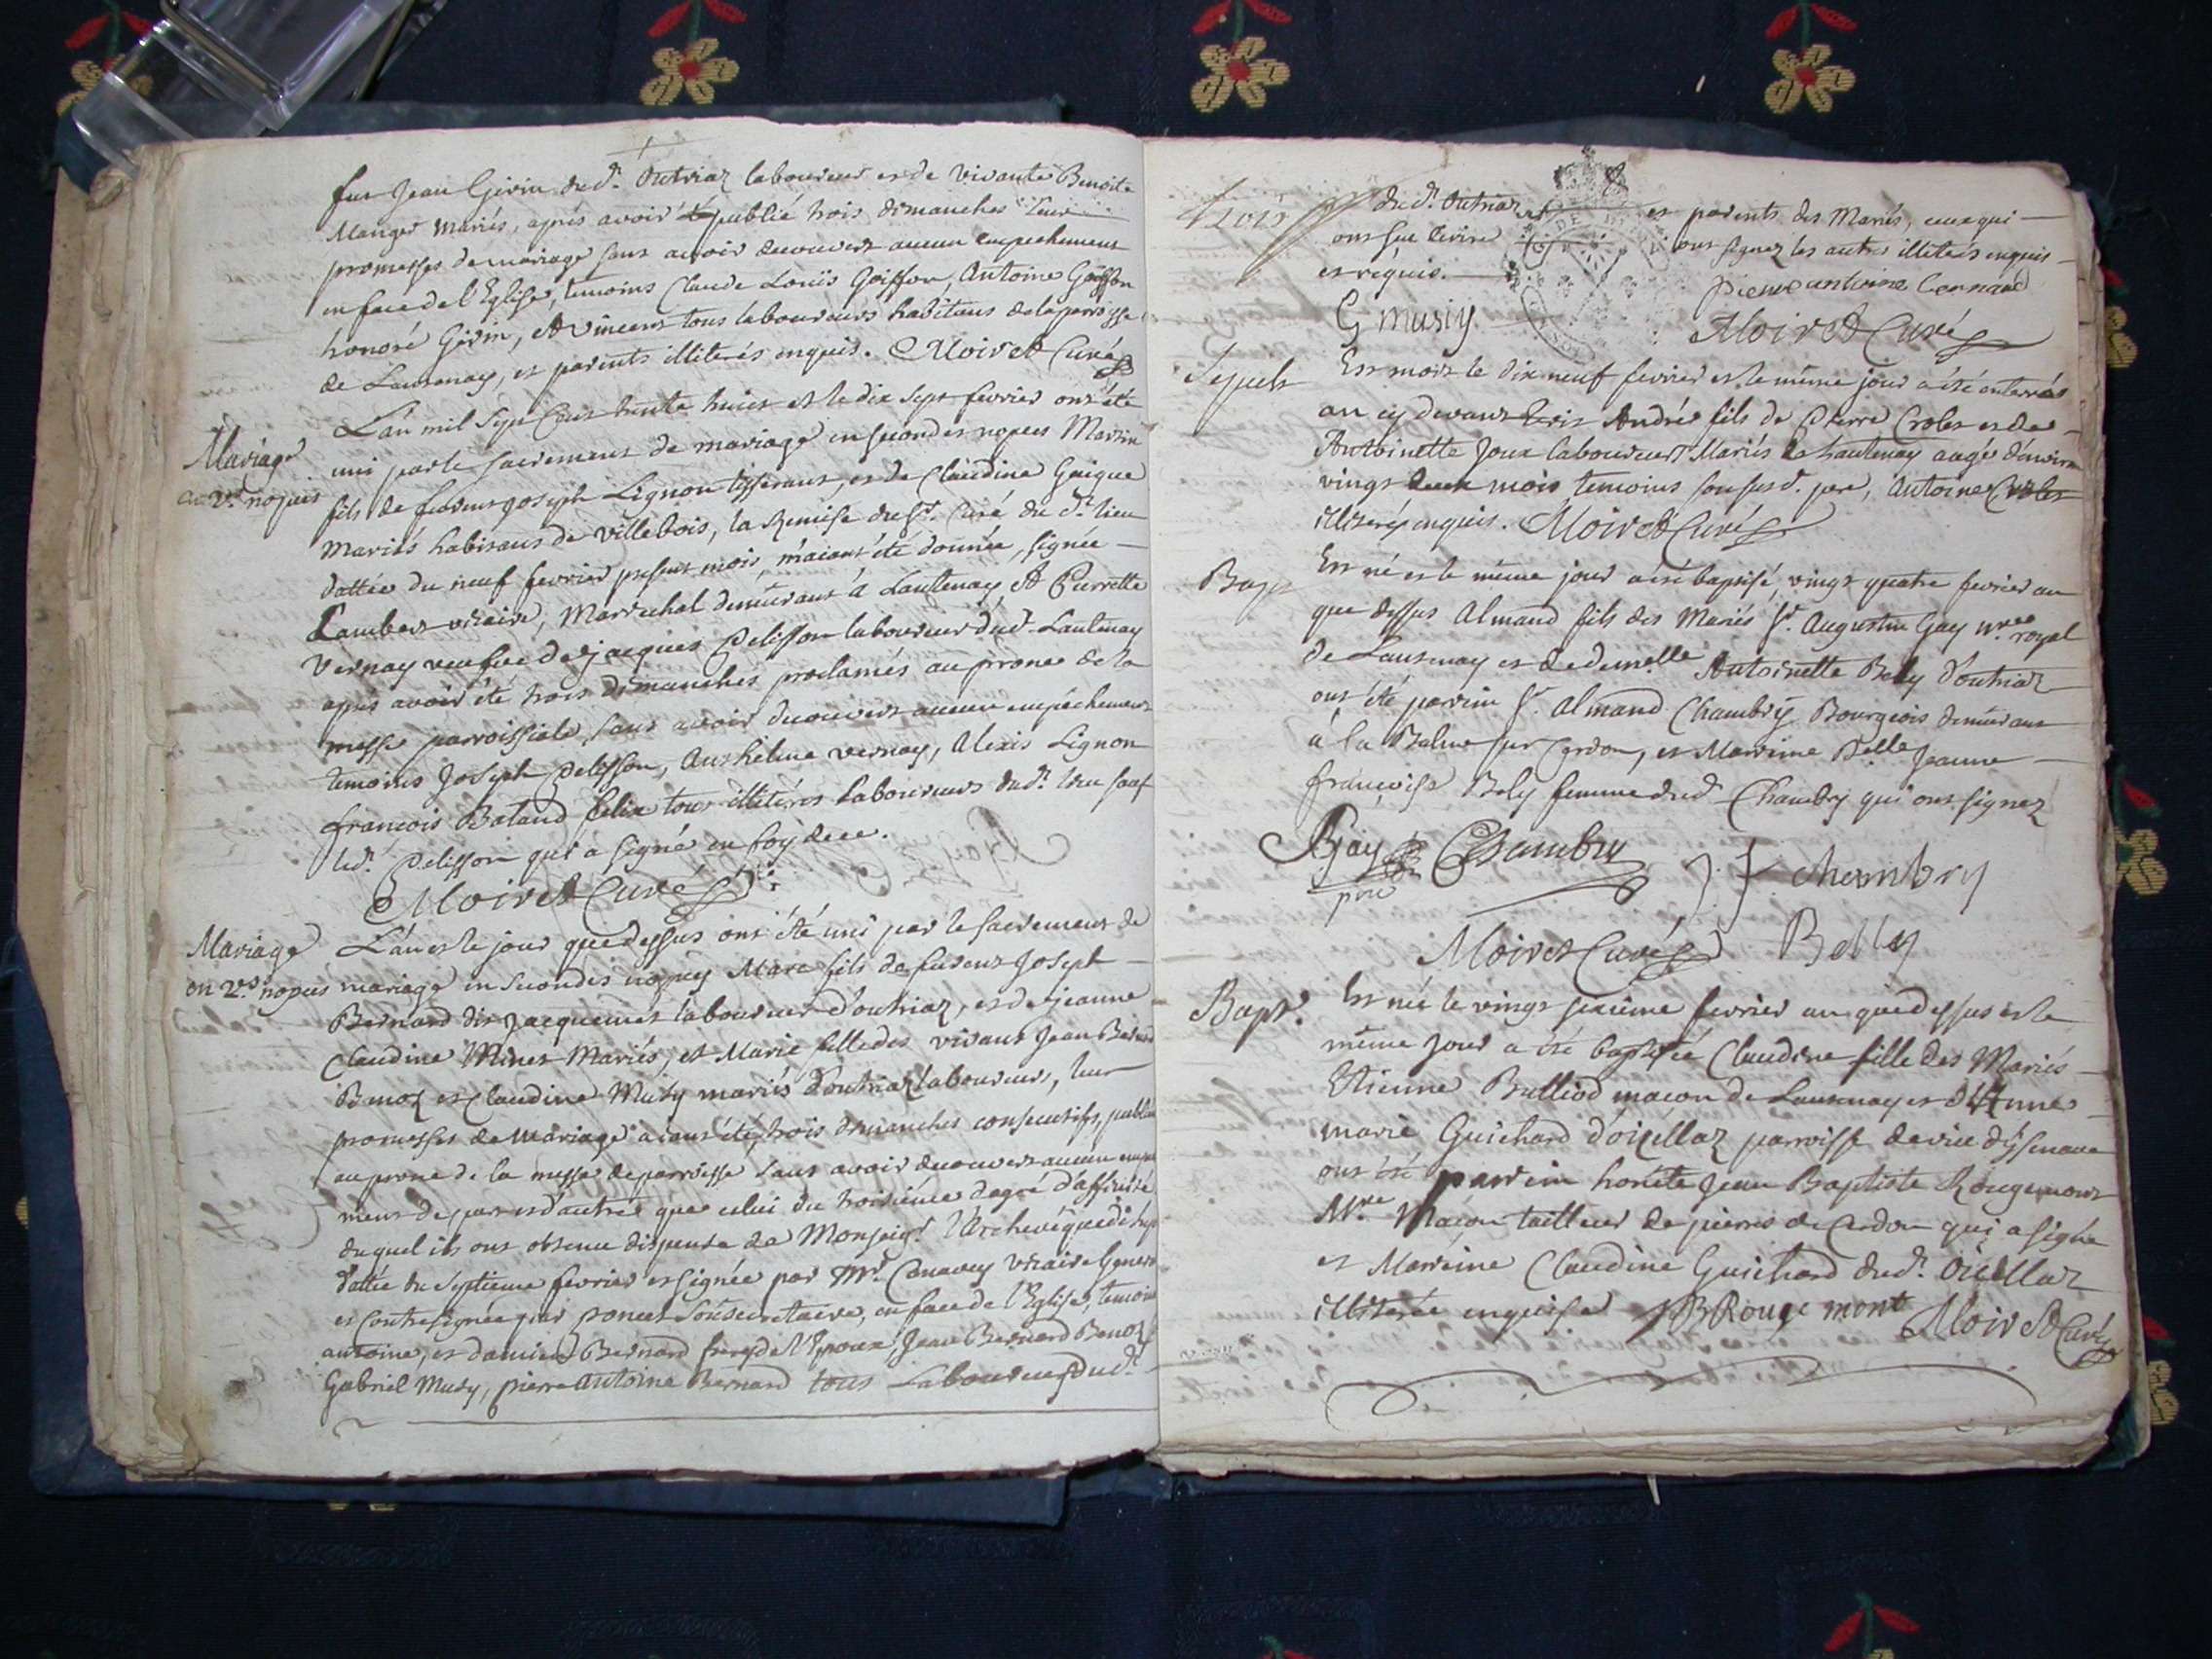 feu Jean Girin dud.t Outriaz laboureur et de vivante Benoite
Manger mariés, aprés avoir publié trois dimanches leur
promesses de mariage sans avoir decouvert aucun empechement
en face de l'Eglise, temoins Claude Louis Goiffon, Antoine Goiffon
honoré Girin, et vincent tous laboureurs habitans de la parroisse
de Lantenay, et parents illiterés enquis. Moiret Curé
L'an mil sept cent trente huict et le dix sept fevrier ont été
Mariage
en 2.des nopces
uni par le sacrement de mariage en secondes nopces Martin
fils de feu Joseph Lignon tisserant, et de Claudine Guigue
mariés habitans de villebois, la Remise du S.r Curé du d.t lieu
dattée du neuf fevrier present mois, m'aiant été donnée, signée
Lambert vicaire, Marechal demeurant à Lantenay, et Pierrette
vernay veufve de jacques Pelisson laboureur dud. Lantenay
aprés avoir été trois dimanches proclamés au prone de la
messe parroissiale, sans avoir decouvert aucun empéchement
temoins Joseph Pelisson, Anthelme vernay, Alexis Lignon
françois Bataud felix tous illiterés laboureurs dud.t lieu sauf
led.t Pelisson qui a signé en foy de ce.
Moiret Curé
Mariage
en 2.des nopces
L'an et le jour que dessus ont été uni par le sacrement de
mariage en secondes nopces Marc fils de Joseph
Bernard dit Jacquemet laboureur d'outriaz, et de jeanne
Claudine Minet Mariés, et Marie fille des vivans Jean Bernard
Benoz et Claudine Musy mariés d'outriaz laboureurs, leur
promesses de mariage aiant été trois dimanches consecutifs publiée
au prone de la messe de parroisse sans avoir decouvert aucun
ment de part et d'autre que celui du troisiéme degré d'affinité
duquel ils ont obtenu dispense de Monseig.r l'Archevéque de
dattée du septieme fevrier et signée par M.r vicaire General
et contresignée par poncet Sousecretaire, en face de l'Eglise, temoins
antoine, et damien Bernard frere de l'Epoux, Jean Bernard Benoz
Gabriel Musy, pierre antoine Bernard tous Laboureurs dud.t
trois
dud.t Outriaz et parents des Mariés, ceux qui
ont sçu ecrire ont signez les autres illiterés enquis
et requis.
pierre antoine bernard
G musiy
Moiret Curé
Sepult
Est mort le dix neuf fevrier et le méme jour a été enterré
an cy devant André fils de Pierre Crolet et de
Antoinette Joux laboureurs Mariés de Lantenay aagé d'environ
vingt deux mois temoins son susd. pere, Antoine Crolet
illiterés enquis. Moiret Curé
Bapt
Est né et le méme jour a été baptisé, vingt quatre fevrier an
que dessus Almand fils des Mariés S.r Augustin Gay n.re royal
de Lantenay et de demelle Antoinette Bely d'outriaz
ont été parrein S.r Almand Chambry Bourgeois demeurant
à la Balme sur Cerdon, et Marreine D.elle Jeanne
françoise Bely femme dud. Chambry qui ont signez
Gay
pere
Chambry
J. f chembry
Moiret Curé
Belly
Bapt.
Est née le vingt sixieme fevrier an que dessus et le
méme jour a été baptisée Claudine fille des Mariés
Etienne Bulliod maçon de Lantenay et d'Anne
marie Guichard d'oicellaz parroisse de vieu d'ysenave
ont été parrein honéte Jean Baptiste Rougemont
M.re Maçon tailleur de pierres de Cerdon qui a signé
et Marreine Claudine Guichard dud.t Oicellaz
illiterée enquise JB Rouge mont
Moiret Curé